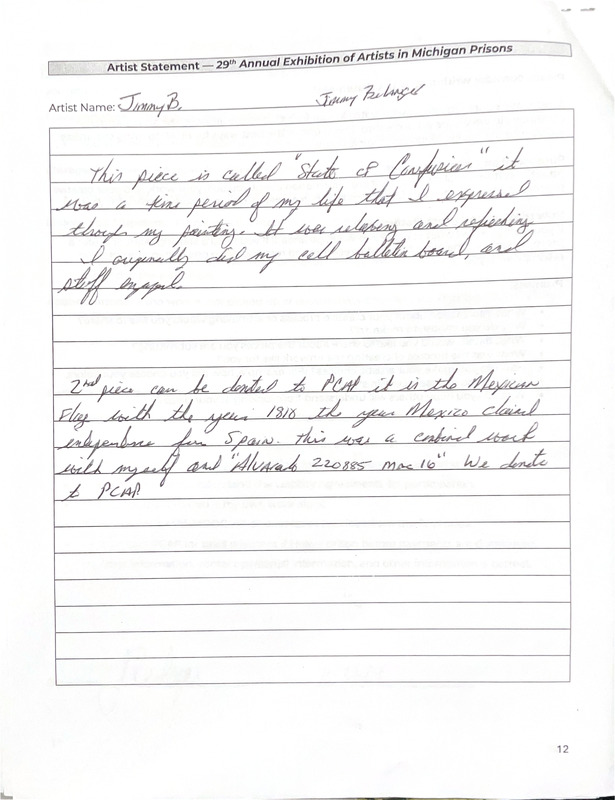 Artist Statement — 29th Annual Exhibition of Artists in Michigan Prisons
Artist Name: Jimmy B. Jimmy Belanger
This piece is called "State of Confusion" it
was a time period of my life that I expressed
through my painting. It was relaxing and refreshing
I originally did my cell bulletin board, and
staff enjoyed.
2nd piece can be donted to PCAP it is the Mexican
Flag with the year 1810 the year Mexico claimed
independence from Spain. this was a combined work
with myself and "Alvarado 220885 mac 16" We donate
to PCAP
12